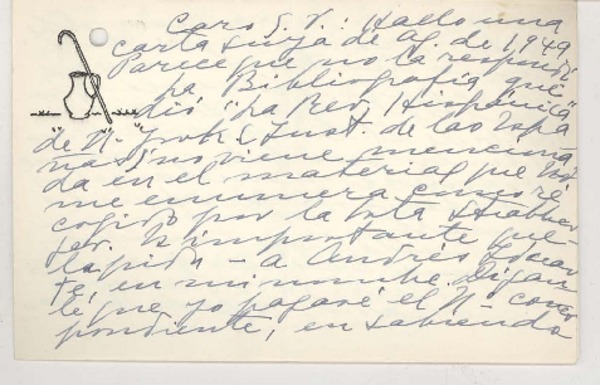 Caro S. V.: Hallo una
carta suya de Ag. de 1949
Parece que no la respondí
La Bibliografía que
dió "La Rev. Hispánica"
de "N. York (Inst. de las Espa
ñas) no viene menciona
da en el material que Ud
me enumera como re
cogido por la Srta
ser. Es importante que
la pida - a Andrés Iduar
te, en mi nombre. Dígan
le que yo pagaré el N- corres
pondiente, en sabiendo